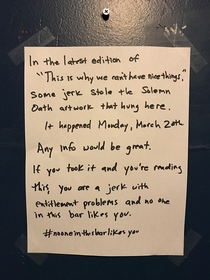 In the latest edition of
"This is why we can't have nice things,"
Some jerk stole the Solemn
Oath artwork that hung here.
It happened Monday, March 20th
Any info would be great.
If you took it and you're reading
this, you are a jerk with
entitlement problems and no one
in this bar likes you.
#nooneinthisbarlikesyou